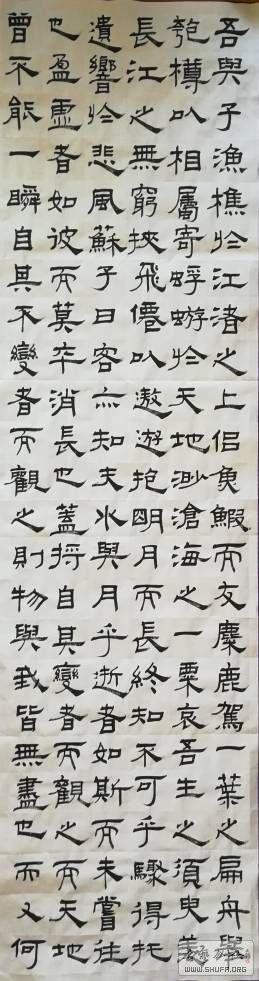 吾與子漁樵於江渚之上侶魚鰕而友麋鹿駕一葉之扁舟舉
匏樽以相屬寄蜉蝣於天地渺滄海之一粟哀吾生之須臾羨
長江之無窮挾飛僊以遨遊抱明月而長終知不可乎驟得托
遺響於悲風蘇子曰客亦知夫水與月乎逝者如斯而未嘗往
也盈虛者如彼而莫卒消長也蓋将自其變者而觀之而天地
曾不能一瞬自其不變者而觀之則物與我皆無盡也而又何
WWW.SHUFA.ORG